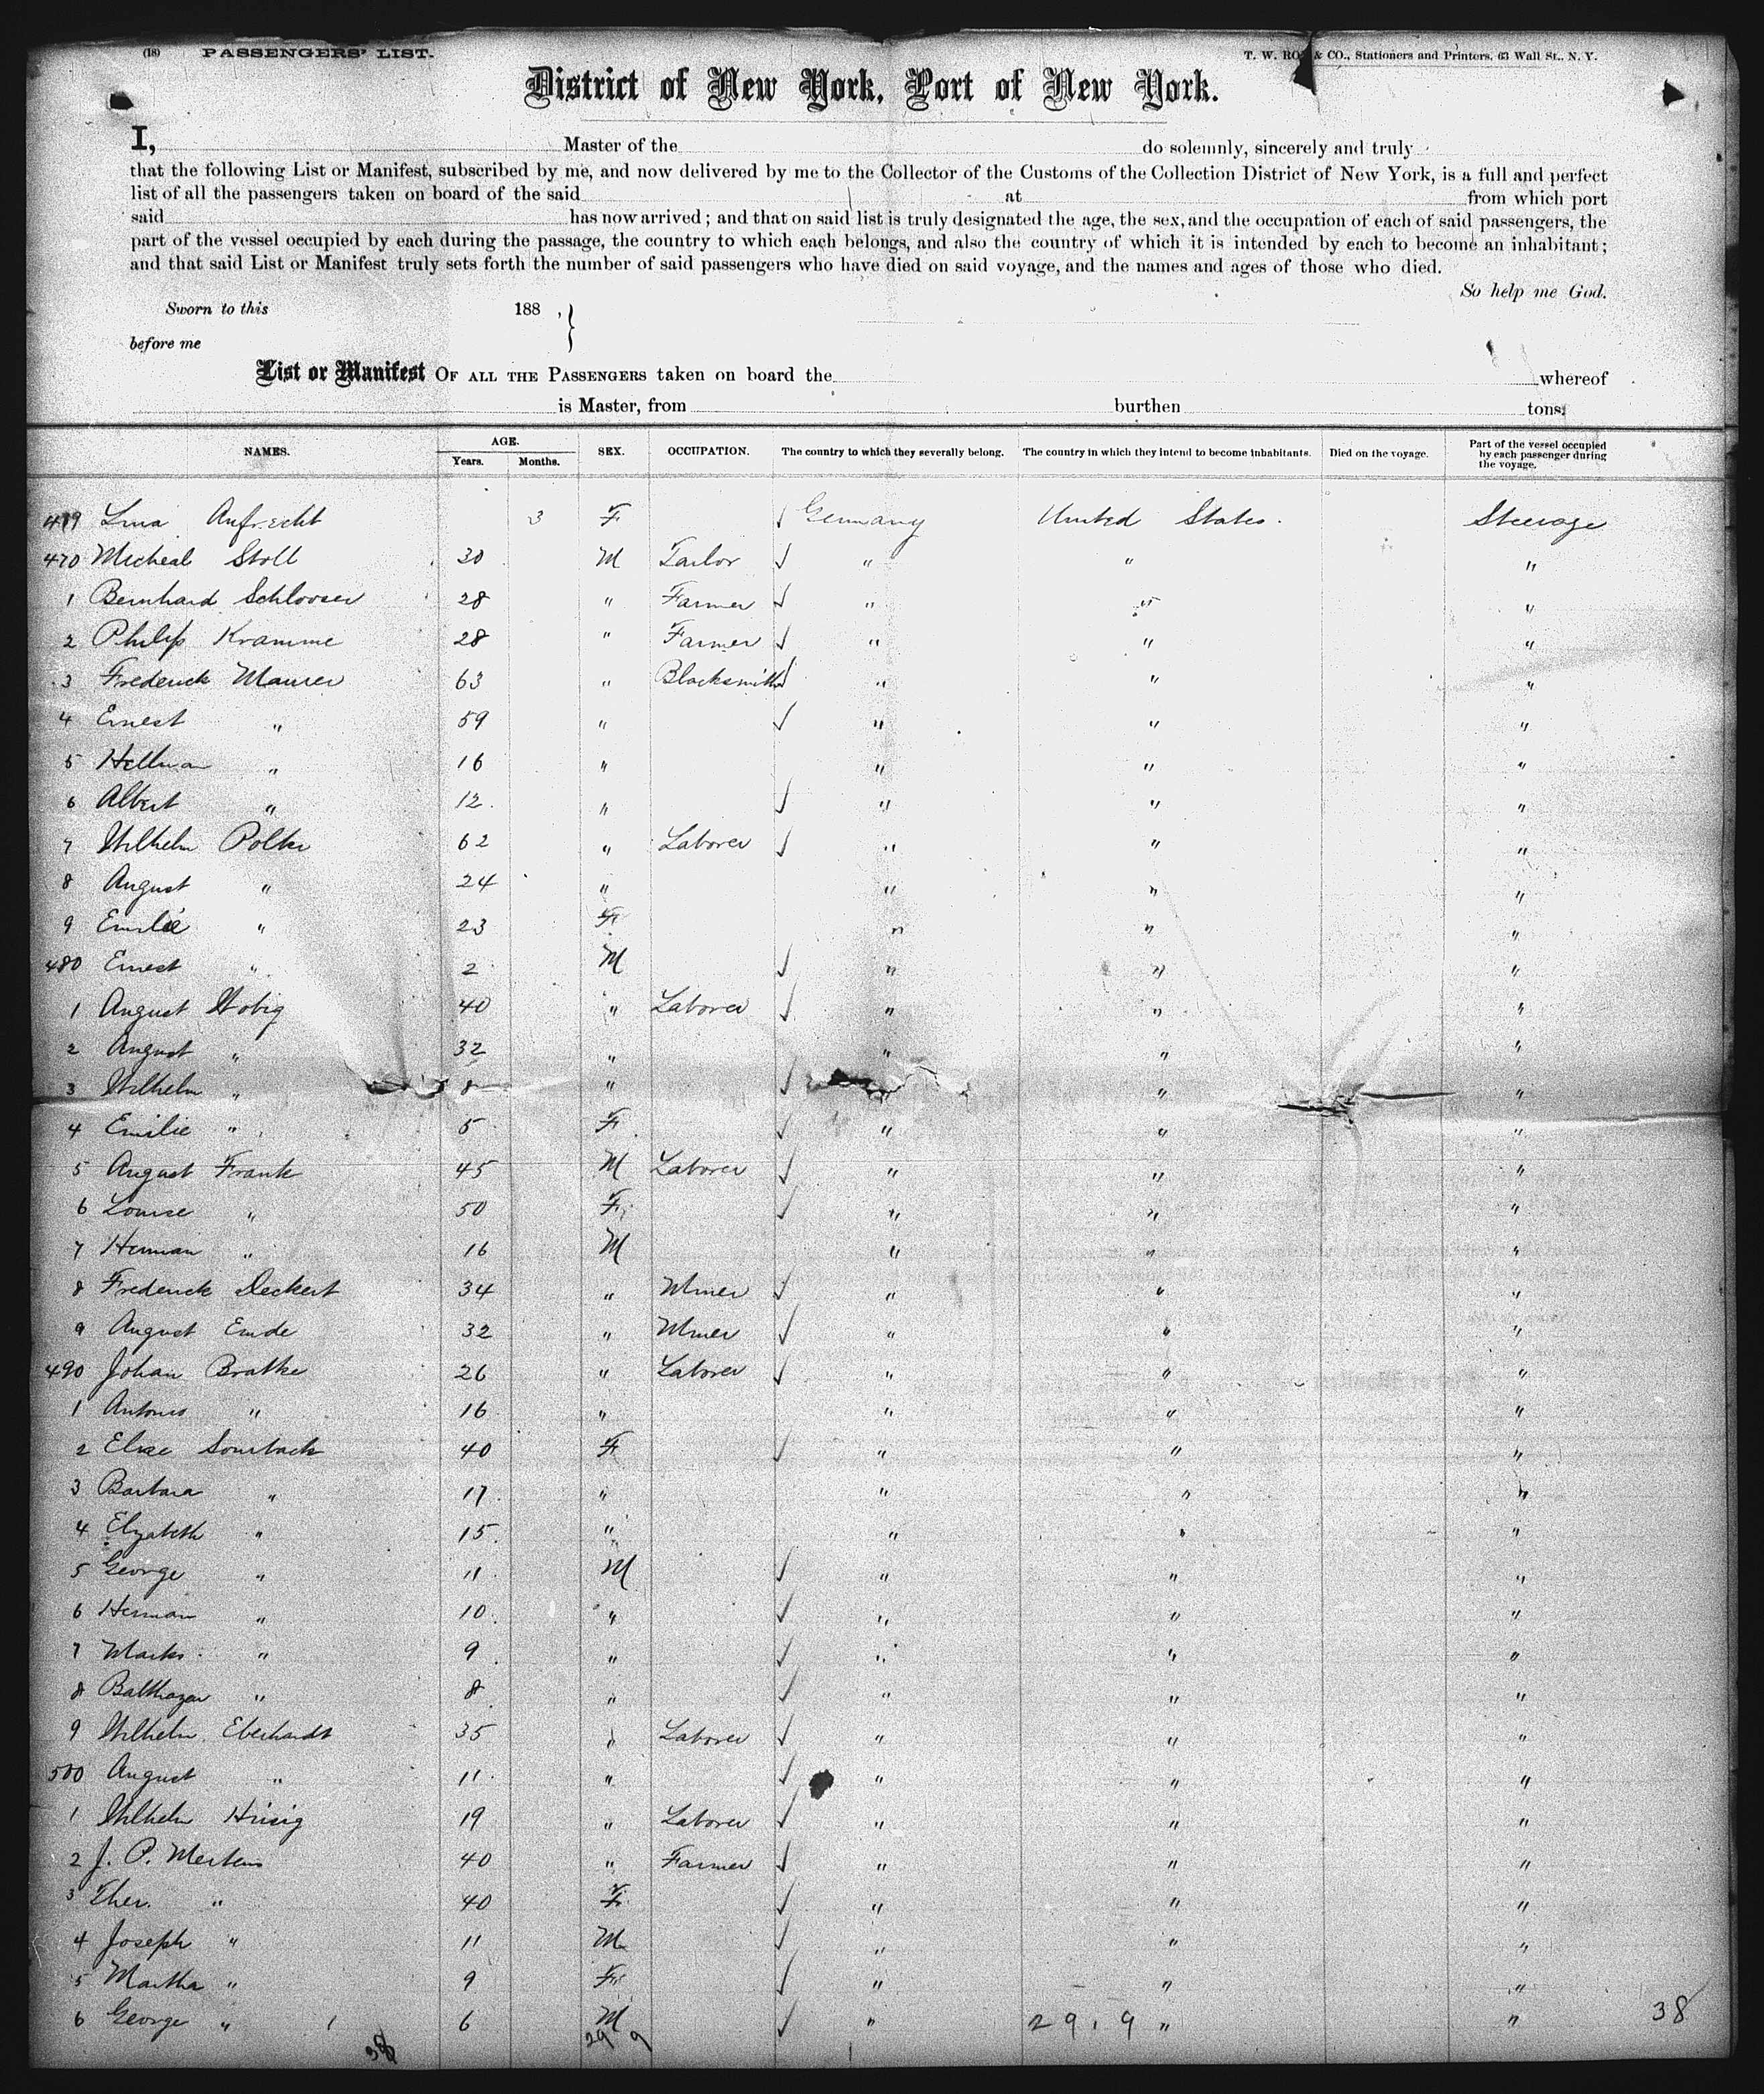 (18) PASSENGERS' LIST.
T. W. & CO., Stationers and Printers, 63 Wall St., N. Y.
District of New York, Port of New York.
I, Master of the do solemnly, sincerely and truly
that the following List or Manifest, subscribed by me, and now delivered by me to the Collector of the Customs of the Collection District of New York, is a full and perfect
list of all the passengers taken on board of the said at from which port
said has now arrived; and that on said list is truly designated the age, the sex, and the occupation of each of said passengers, the
part of the vessel occupied by each during the passage, the country to which each belongs, and also the country of which it is intended by each to become an inhabitant;
and that said List or Manifest truly sets forth the number of said passengers who have died on said voyage, and the names and ages of those who died.
So help me God.
Sworn to this 188 ,
before me
List or Manifest OF ALL THE PASSENGERS taken on board the whereof
is Master, from burthen tons;
NAMES. AGE. Years. Months. SEX. OCCUPATION. The country to which they severally belong. The country in which they intend to become inhabitants. Died on the voyage. Part of the vessel occupied by each passenger during the voyage.
Lina Aufrecht 3 F Germany United States. Steerage
470 Micheal Stoll 30 M Tailor " " "
1 Bernhard Schlosser 28 " Farmer " " "
2 Philip Kramme 28 " Farmer " " "
3 Frederick Maurer 63 " Blacksmith " " "
4 Ernest " 59 " " " "
5 Hellman " 16 " " " "
6 Albert " 12 " " " "
7 Wilhelm Polke 62 " Laborer " " "
8 August " 24 " " " "
9 Emilie " 23 F " " "
480 Ernest " 2 M " " "
1 August 40 " Laborer " " "
2 August " 32 " " " "
3 Wilhelm " 8 " " " "
4 Emilie " 5 F " " "
5 August Frank 45 M Laborer " " "
6 Louise " 50 F " " "
7 Herman " 16 M " " "
8 Frederick Deckert 34 " Miner " " "
9 August Emde 32 " Miner " " "
490 Johan Bratke 26 " Laborer " " "
1 Antonio " 16 " " " "
2 Elise 40 F " " "
3 Barbara " 17 " " " "
4 Elizabeth " 15 " " " "
5 George " 11 M " " "
6 Herman " 10 " " " "
7 Marks " 9 " " " "
8 Balthazar " 8 " " " "
9 Wilhelm Eberhardt 35 " Laborer " " "
500 August " 11 " " " "
1 Wilhelm 19 " Laborer " " "
2 J. P. Mertens 40 " Farmer " " "
3 Ther. " 40 F " " "
4 Joseph " 11 M " " "
5 Martha " 9 F " " "
6 George " 6 M " 29.9 " " 38
38 29 9